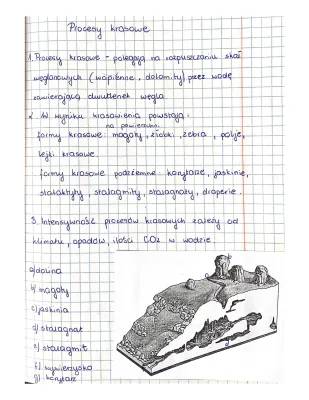 Procesy krasowe
1. Procesy krasowe - polegają na rozpuszczaniu skał
węglanowych (wapienie, dolomity) przez wodę
zawierającą dwutlenek węgla
2. W wyniku krasowienia powstają:
na powierzchni
formy krasowe: mogoty, żłobki, żebra, polje,
lejki krasowe.
formy krasowe podziemne: korytarze, jaskinie,
stalaktyty, stalagmity, stalagnaty, draperie.
3. Intensywność procesów krasowych zależy od
klimatu, opadów, ilości CO2 w wodzie.
a) dolina
b) mogoty
c) jaskinia
d) stalagnat
e) stalagmit
f) wywierzysko
g) korytarz